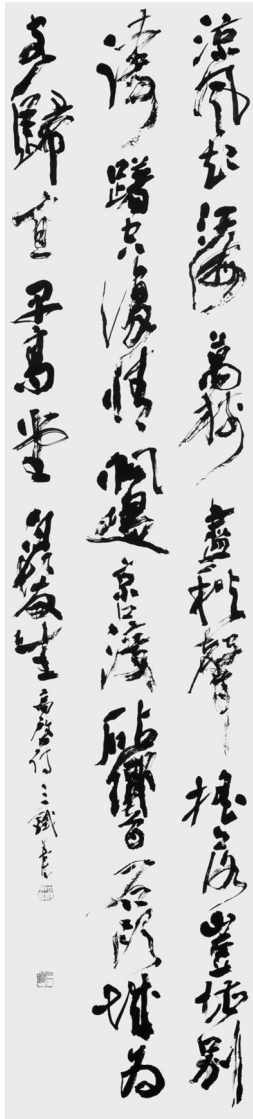 涼風起江海萬樹盡秋聲搖落豈堪別
躊躇空復情帆過京口渡砧響石頭城為
客歸宜早高堂白髮生高啓詩三鐵